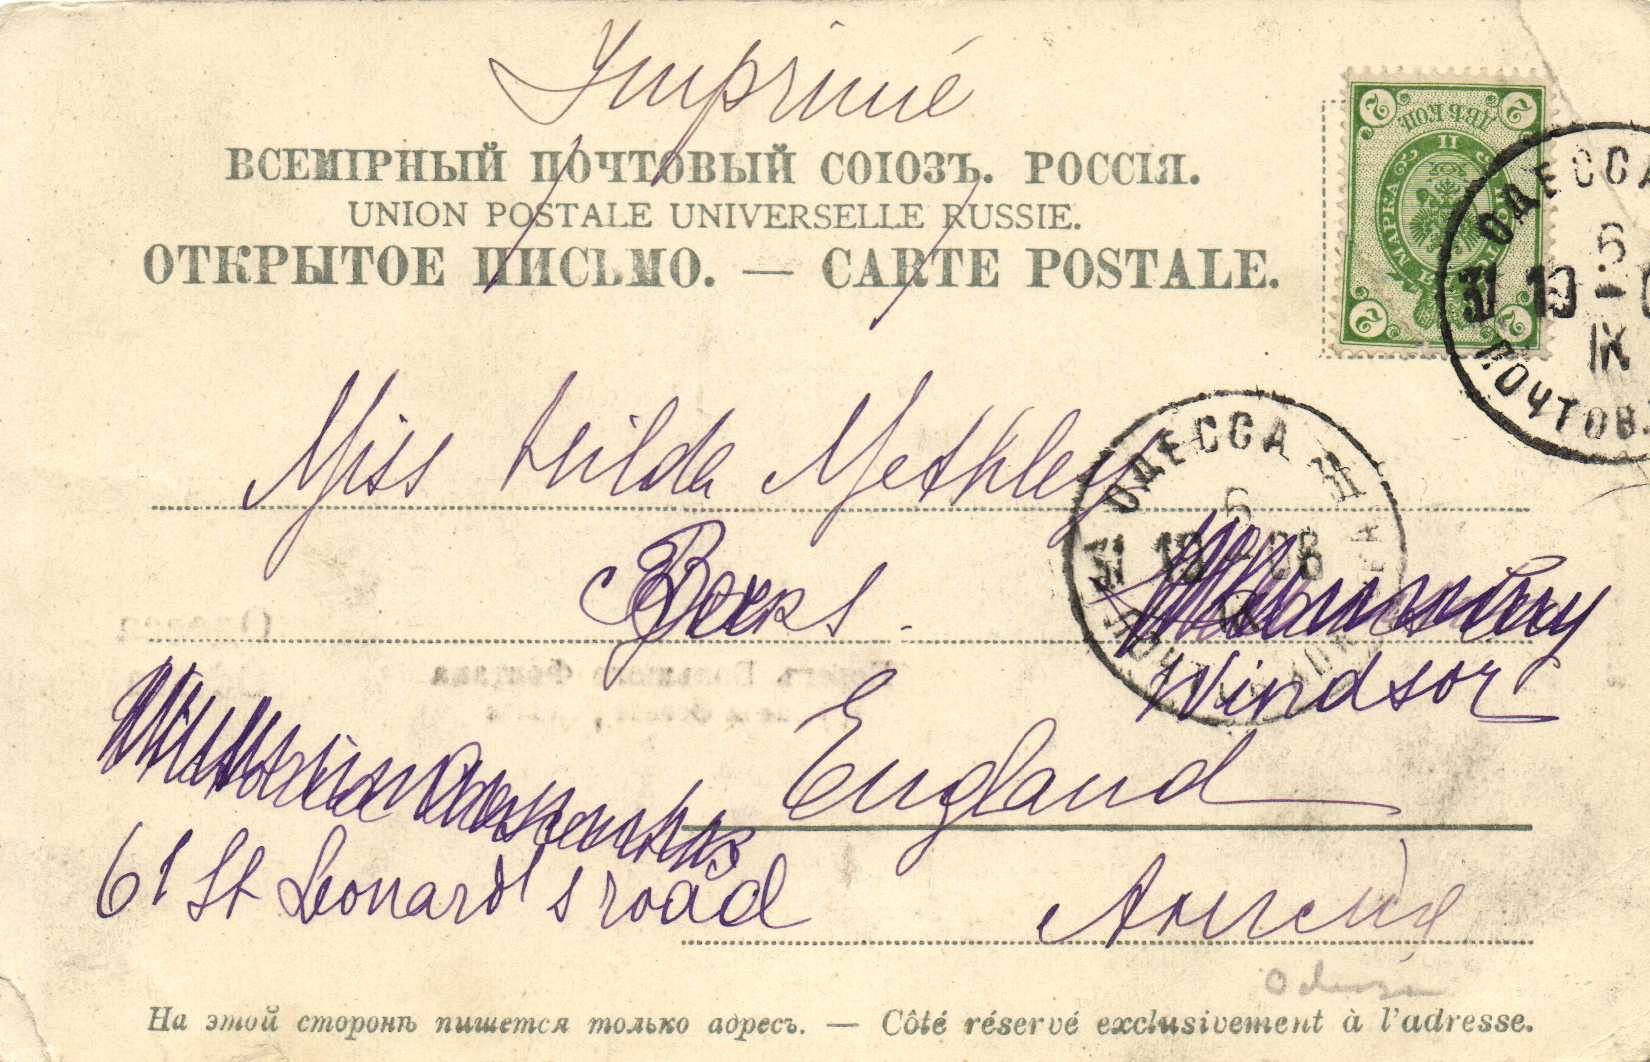 Imprimé
ВСЕМІРНЫЙ ПОЧТОВЫЙ СОЮЗЪ. РОССІЯ.
UNION POSTALE UNIVERSELLE RUSSIE.
ОТКРЫТОЕ ПИСЬМО. — CARTE POSTALE.
2 ДВѢ КОП 2
II
ПОЧТОВАЯ МАРКА
2 2
ОДЕССА
6
31 10 - 0
IX
ПОЧТОВ.
Miss Hilda Methley
ОДЕССА
6
31 10 - 08
IX
Berks.
Windsor
England
61 St Leonard's road
Англия
Odessa
На этой сторонѣ пишется только адресъ. — Côté réservé exclusivement à l'adresse.